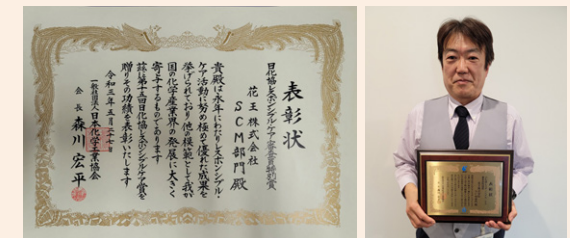 表彰状
日化協レスポンシブルケア審査員特別賞
花王株式会社
ＳＣＭ部門殿
貴殿は永年にわたりレスポンシブル・
ケア活動に努め極めて優れた成果を
挙げられており他の模範として我が
国の化学産業界の発展に大きく
寄与するものであります
茲に第十五回日化協レスポンシブルケア賞を
贈りその功績を表彰いたします
令和三年五月二十七日
一般社団法人日本化学工業協会
会長 森川宏平